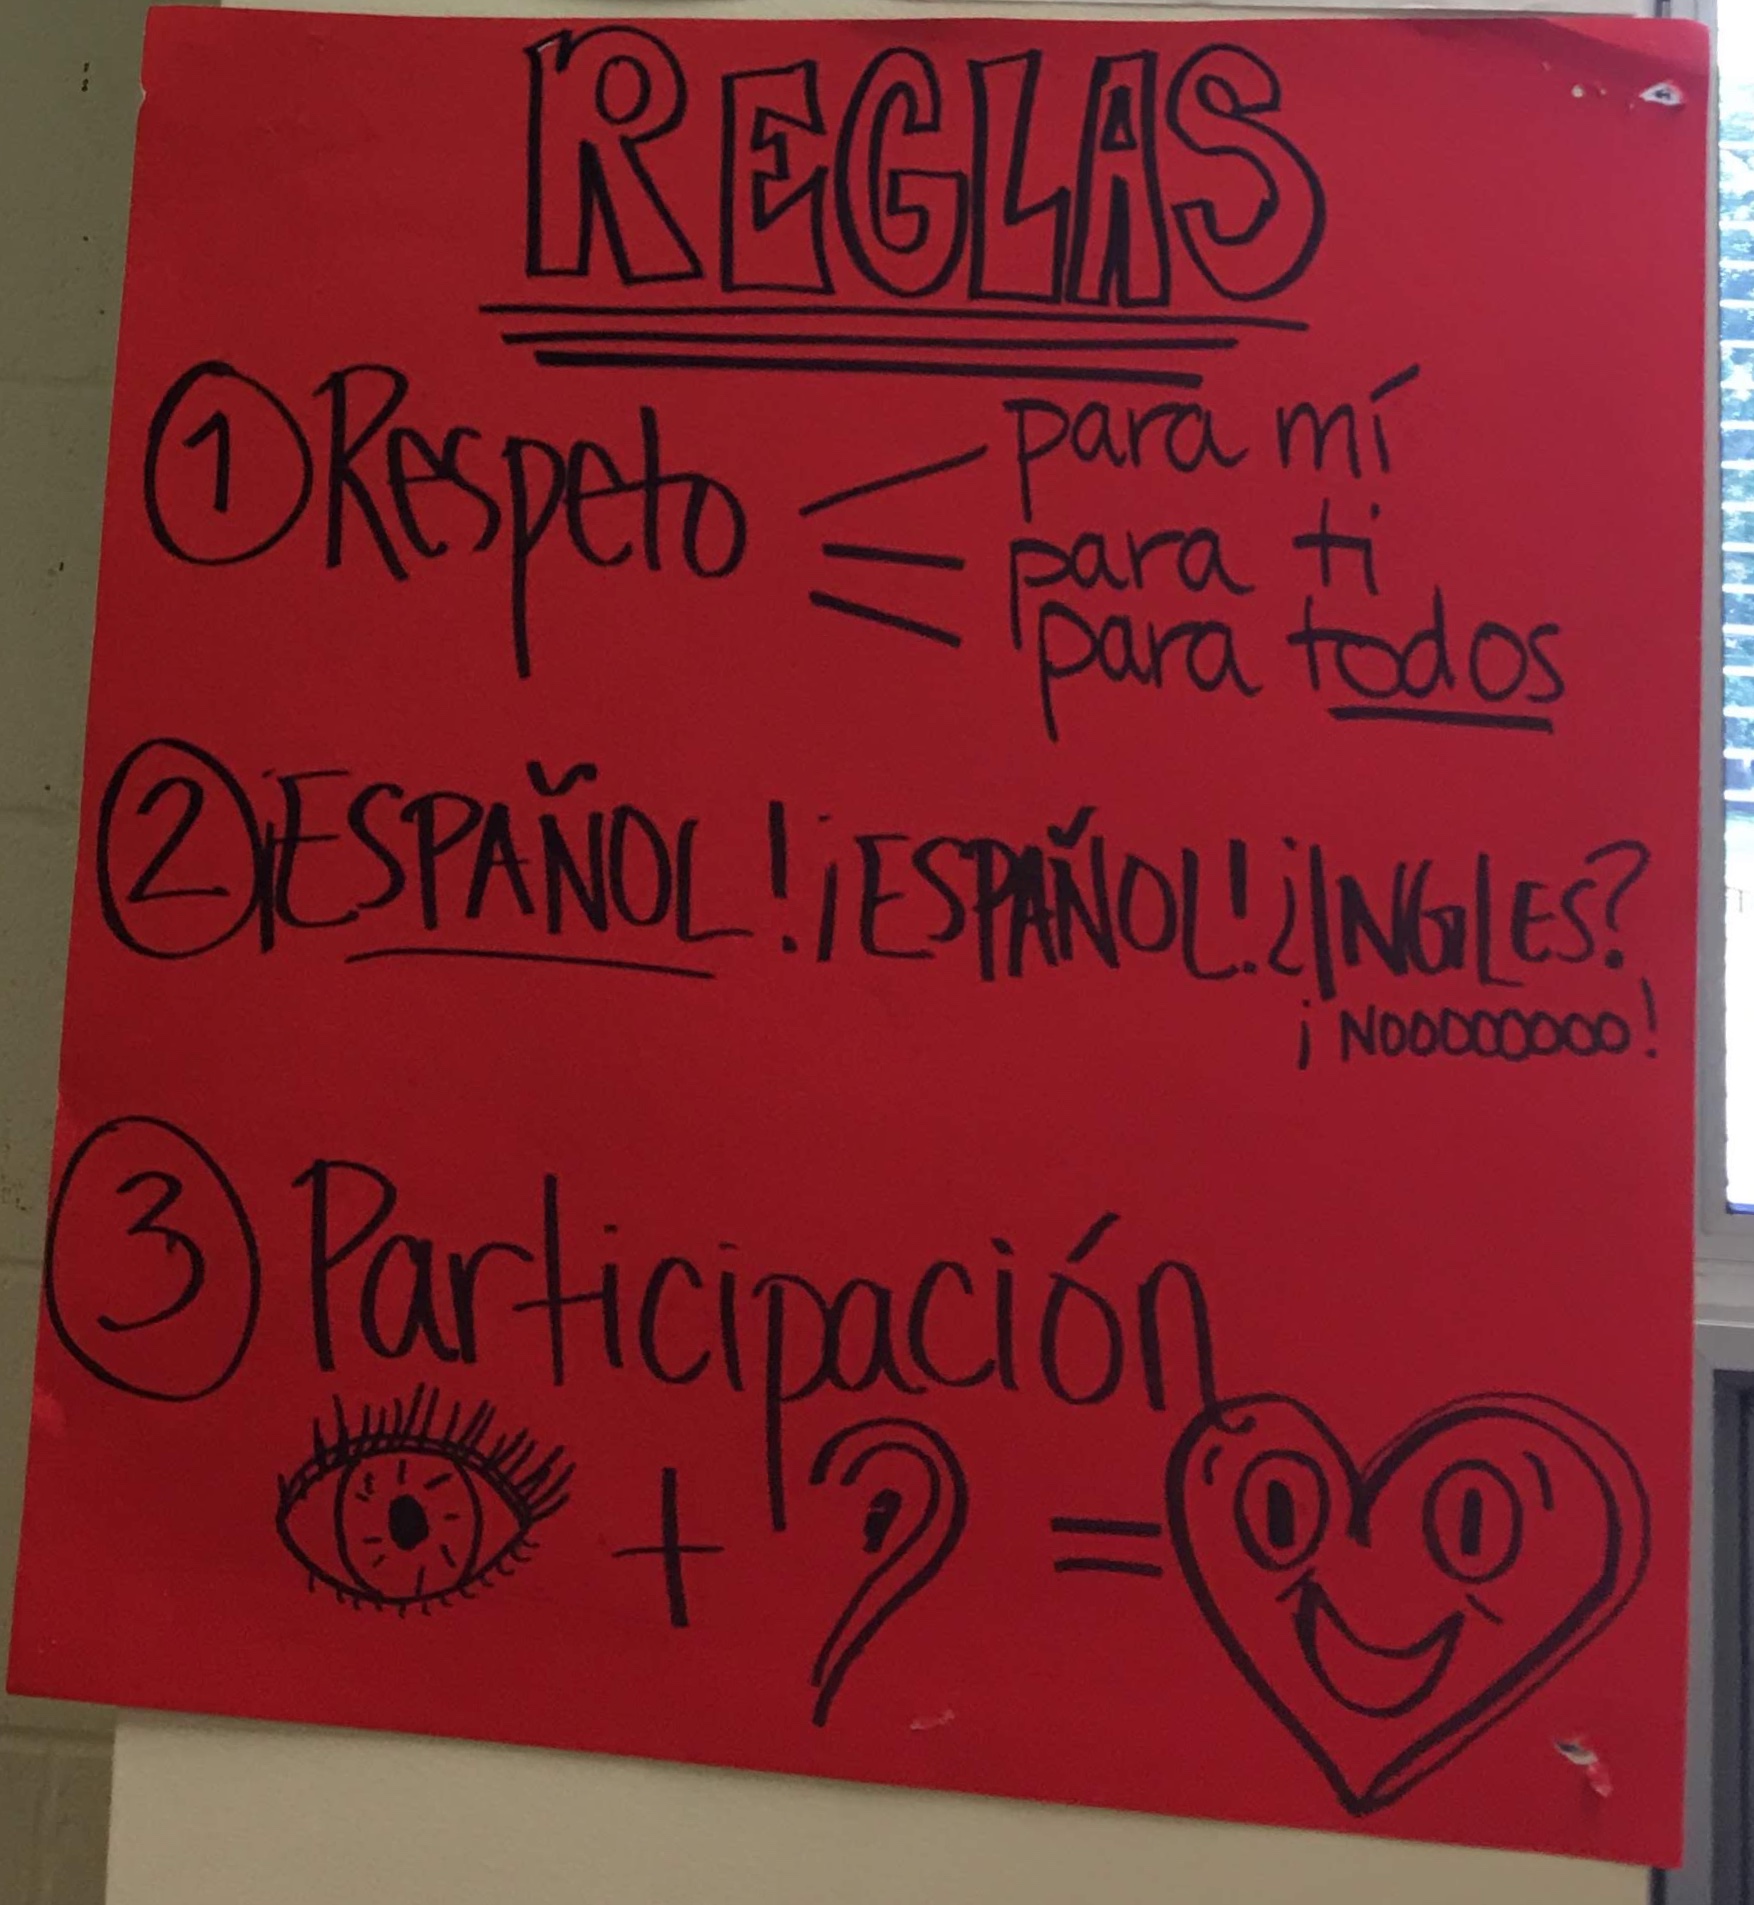 REGLAS
① Respeto
para mí
para ti
para todos
② ¡ESPAÑOL! ¡ESPAÑOL! ¿INGLES?
¡NOOOOOOOO!
③ Participación
+ =